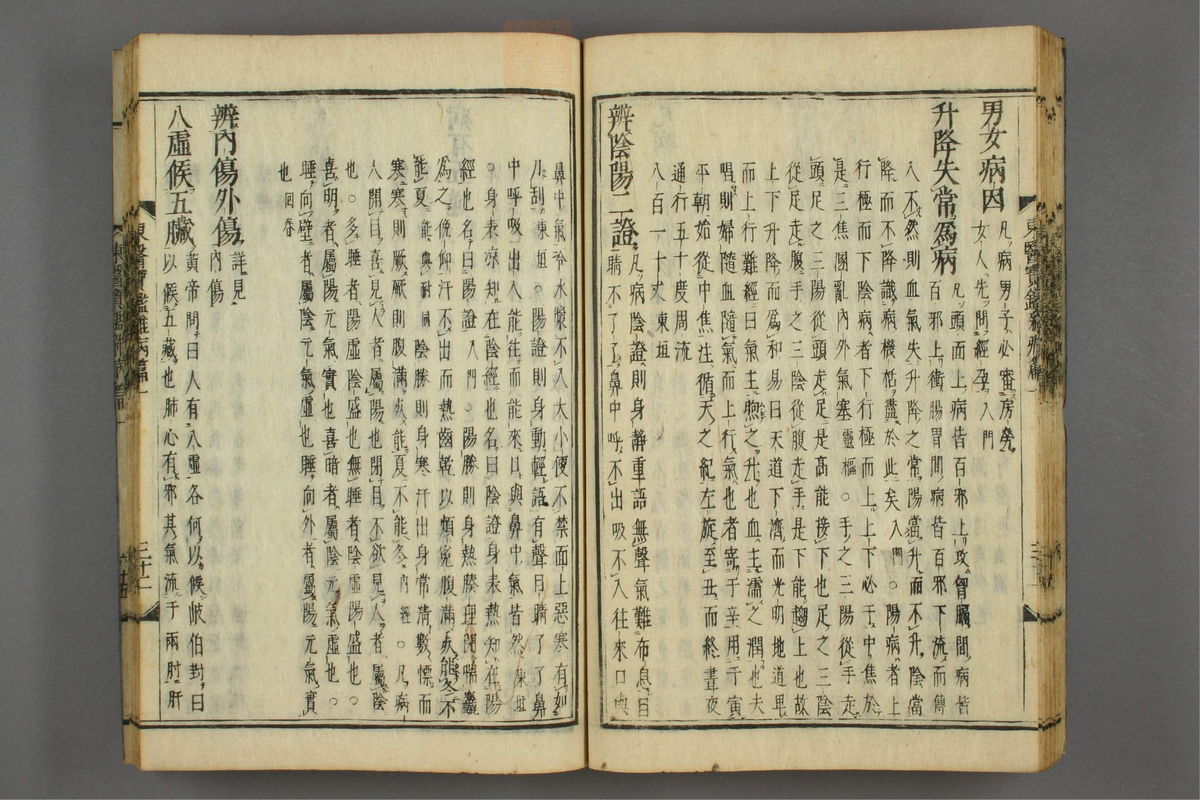 男女病因凡病男子必審房勞
女人先問經孕入門
升降失常爲病凡頭面上病皆百邪上攻胷膈間病皆
百邪上衝腸胃間病皆百邪下流而傳
入不然則血氣失升降之常陽當升而不升陰當
降而不降識病機栝盡於此矣入門○陽病者上
行極而下陰病者下行極而上上下必于中焦於
是三焦溷亂內外氣塞靈樞○手之三陽從手走
頭足之三陽從頭走足是高能接下也足之三陰
從足走腹手之三陰從腹走手是下能趨上也故
上下升降而爲和易曰天道下濟而光明地道卑
而上行難經曰氣主煦之升也血主濡之潤也夫
唱則婦隨血隨氣而上行氣也者寄于辛用于寅
平朝始從中焦注循天之紀左旋至丑而終晝夜
通行五十度周流
八百一十丈東垣
辨陰陽二證凡病陰證則身靜重語無聲氣難布息目
睛不了了鼻中呼不出吸不入往來口與
鼻中氣冷水漿不入大小便不禁面上惡寒有如
刀刮東垣○陽證則身動輕語有聲目睛了了鼻
中呼吸出入能往而能來口與鼻中氣皆然東垣
○身表凉知在陰經也名曰陰證身表熱知在陽
經也名曰陽證入門○陽勝則身熱腠理閉喘麤
爲之俛仰汗不出而熱齒乾以煩寃腹滿死能冬不
能夏能與耐同陰勝則身寒汗出身常淸數慄而
寒寒則厥厥則腹滿死能夏不能冬內經○凡病
人開目喜見人者屬陽也閉目不欲見人者屬陰
也○多睡者陽虛陰盛也無睡者陰虛陽盛也○
喜明者屬陽元氣實也喜暗者屬陰元氣虛也○
睡向壁者屬陰元氣虛也睡向外者屬陽元氣實
也回春
辨內傷外傷詳見
內傷
八虛候五臟黃帝問曰人有八虛各何以候岐伯對曰
以候五藏也肺心有邪其氣流于兩肘肝